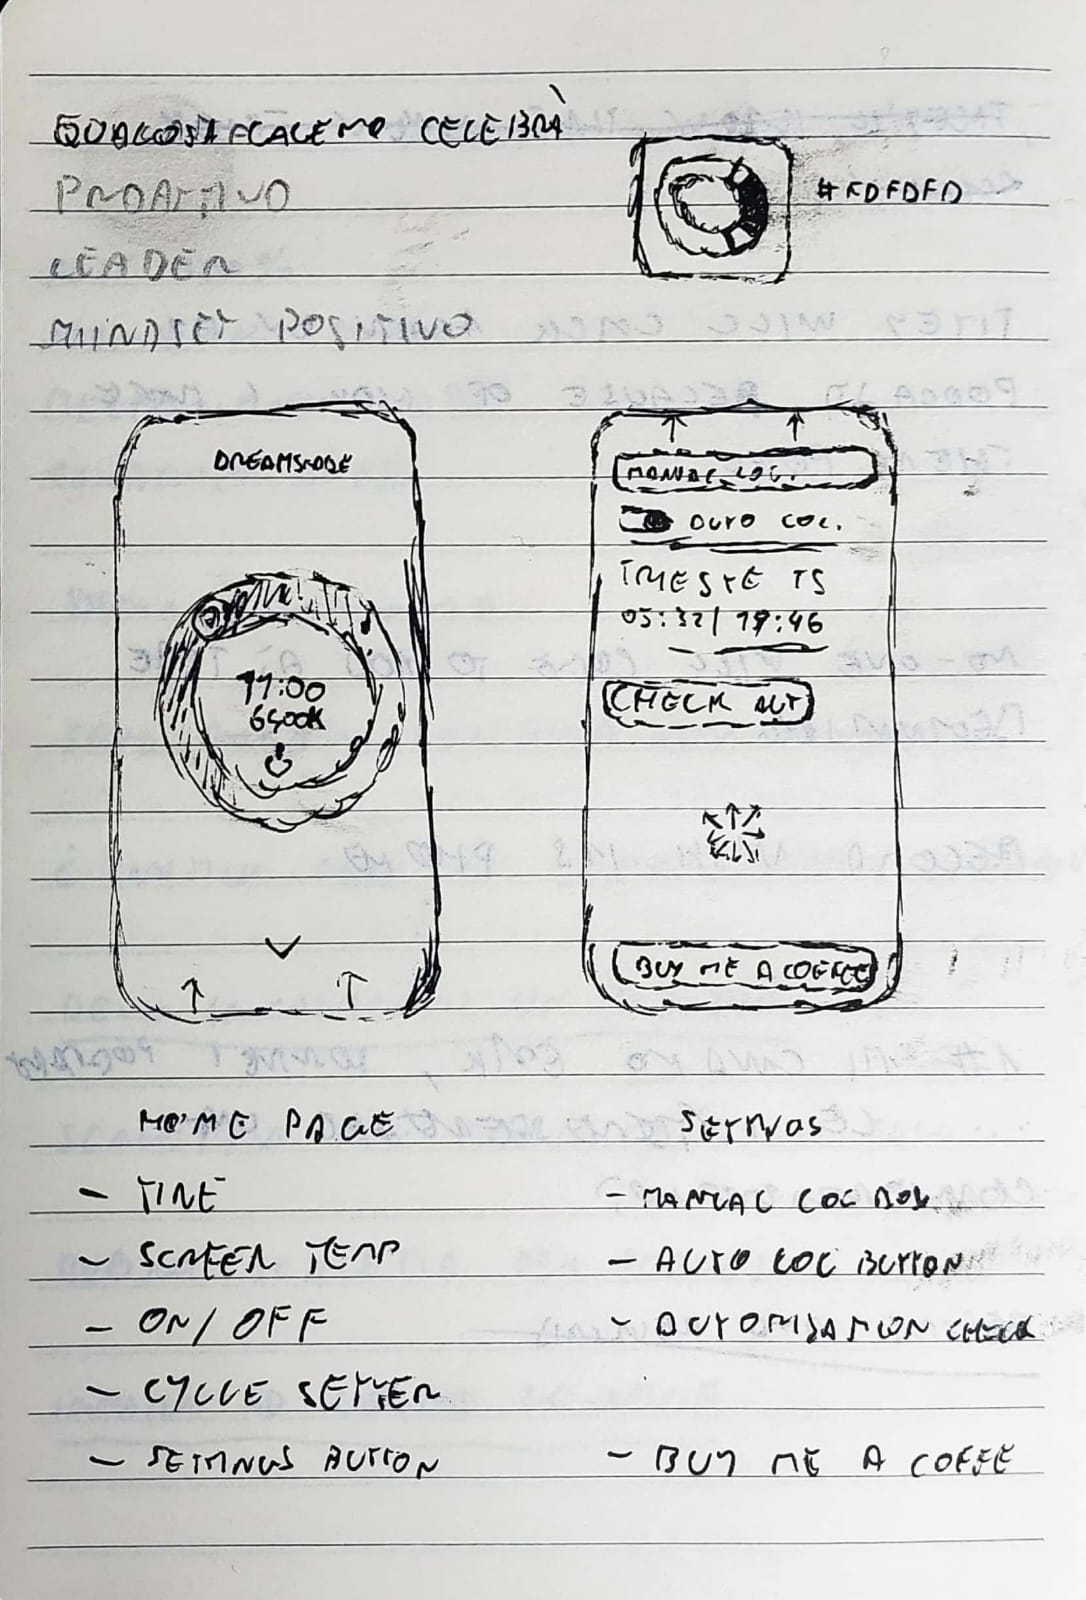 CELEBRÀ
PROATTIVO
LEADER
MINDSET POSITIVO
#FDFDFD
DREAMSHADE
11:00
6400K
MANUAL LOC.
AUTO LOC.
TRIESTE TS
05:32 / 19:46
CHECK AUT
BUY ME A COFFEE
HOME PAGE
- TIME
- SCREEN TEMP
- ON/OFF
- CYCLE SETTER
- SETTINGS BUTTON
SETTINGS
- MANUAL LOC BOX
- AUTO LOC BUTTON
- AUTOMISATION CHECK
- BUY ME A COFFE